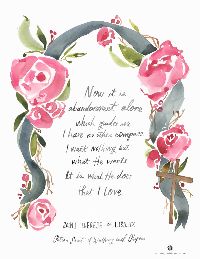 Now it is
abandonment alone
which guides me
I have no other compass
I want nothing but
what He wants
It is what He does
that I love.
SAINT THERESE of LISIEUX